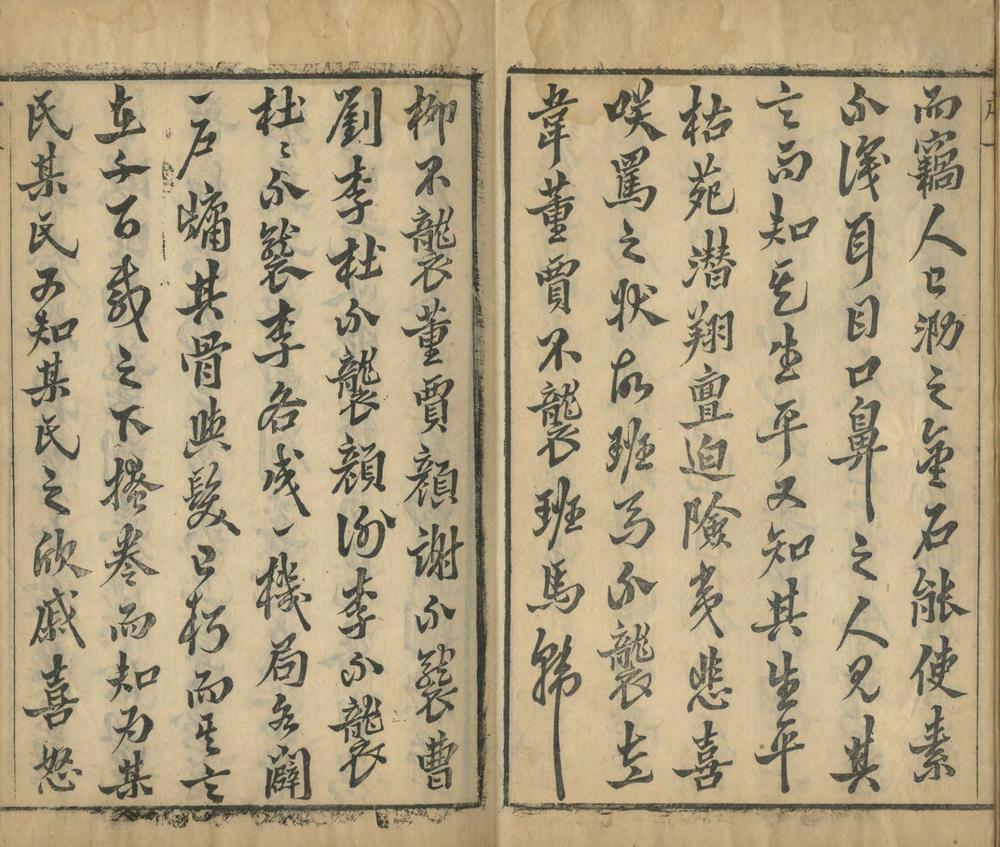 而竊人已泐之金石能使素
不識耳目口鼻之人見其
言而知其生平又知其生平
枯菀潛翔亶迫險夷悲喜
咲罵之狀故班馬不襲左
韋董賈不襲班馬韓
柳不襲董賈顏謝不襲曹
劉李杜不襲顏謝李不襲
杜杜不襲李各成一機局各闢
一戶牖其骨與髮已朽而其言
在千百載之下搭卷而知为某
民某民又知某民之欣戚喜怒